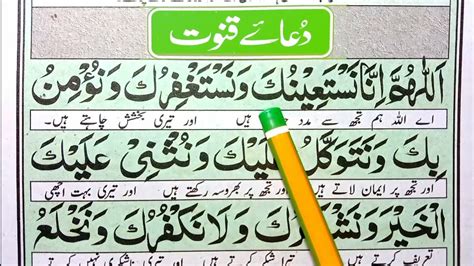 دُعائے قنوت
اَللّٰهُمَّ اِنَّا نَسْتَعِيْنُكَ وَنَسْتَغْفِرُكَ وَنُؤْمِنُ
اے اللہ ہم تجھ سے مدد چاہتے ہیں اور تیری بخشش چاہتے ہیں۔
بِكَ وَنَتَوَكَّلُ عَلَيْكَ وَنُثْنِيْ عَلَيْكَ
اور تجھ پر ایمان لاتے ہیں اور تجھ پر بھروسہ رکھتے ہیں اور تیری بہت اچھی
الْخَيْرَ وَنَشْكُرُكَ وَلَا نَكْفُرُكَ وَنَخْلَعُ
تعریف کرتے ہیں تیرا شکر کرتے ہیں اور تیری ناشکری نہیں کرتے